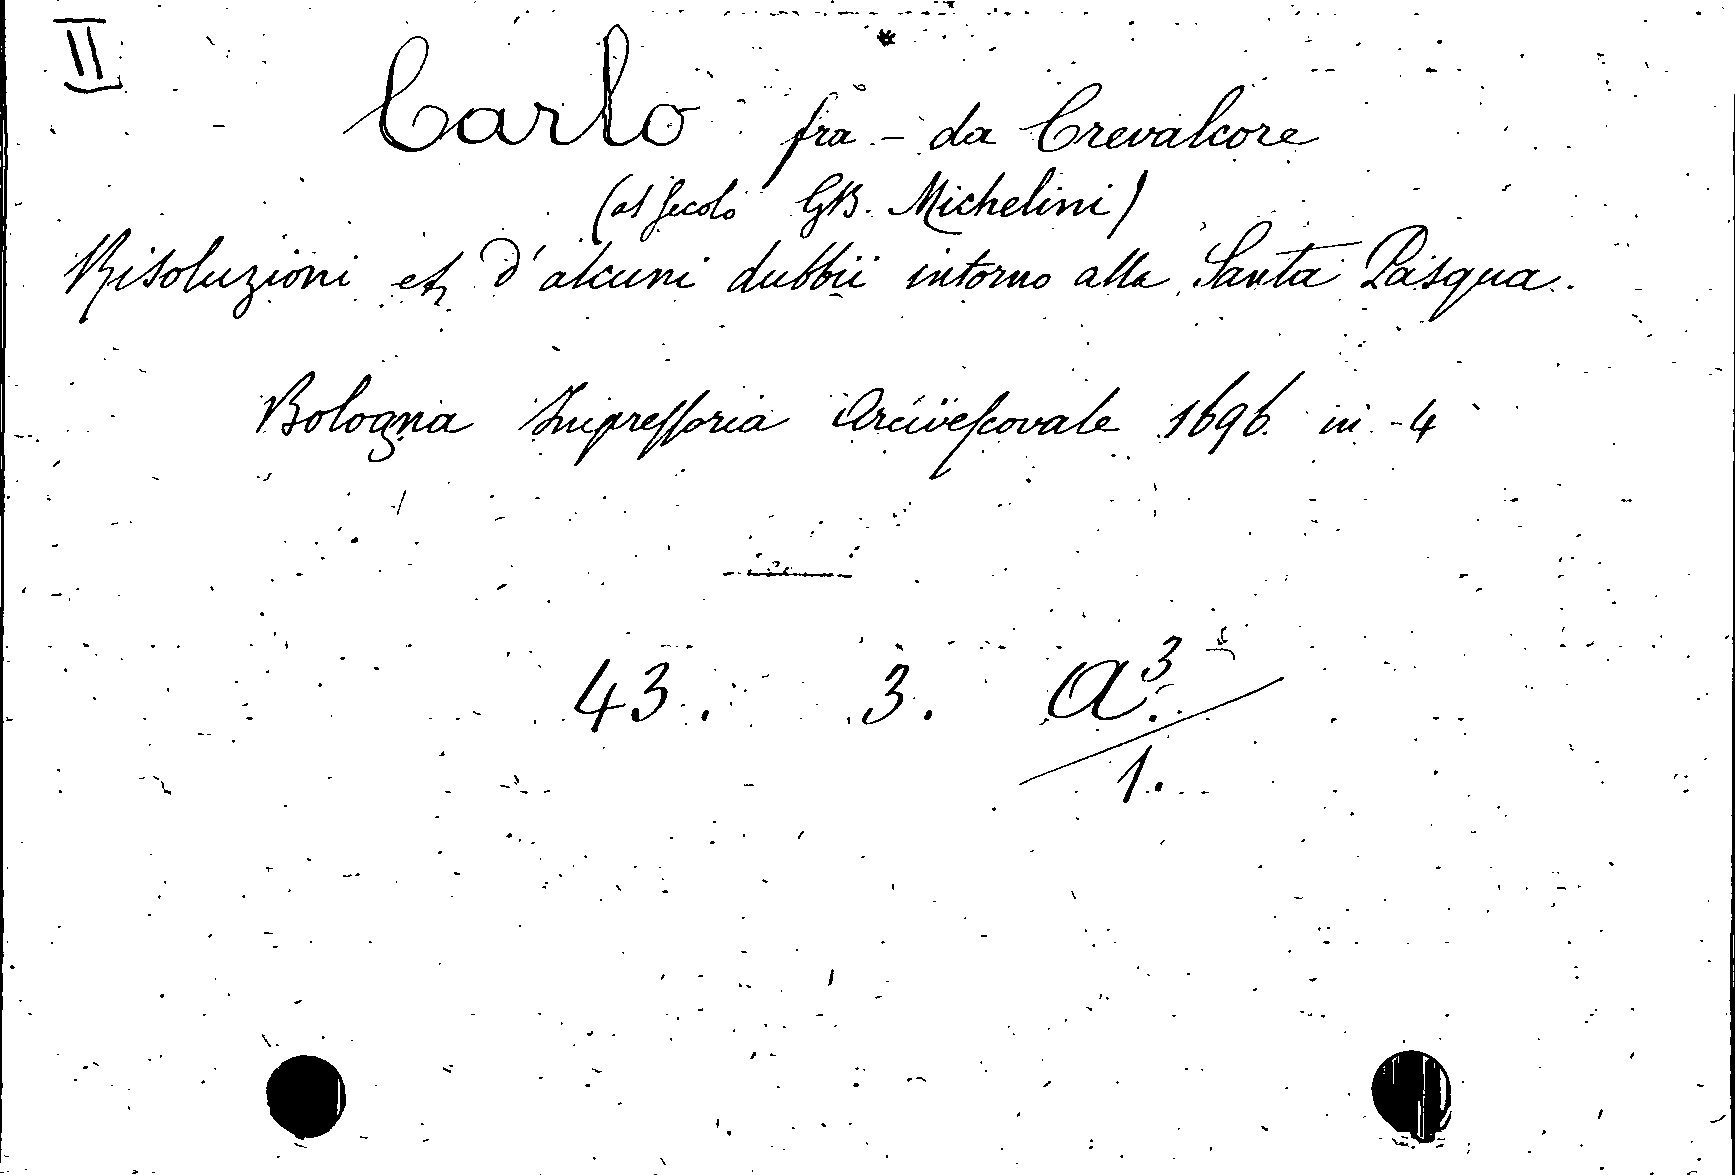 II
Carlo fra - da Crevalcore
(al secolo GB. Michelini)
Risoluzioni etc d'alcuni dubbii intorno alla Santa Pasqua.
Bologna Impressoria Arcivescovale 1696. in - 4
43. 3. a³.
1.